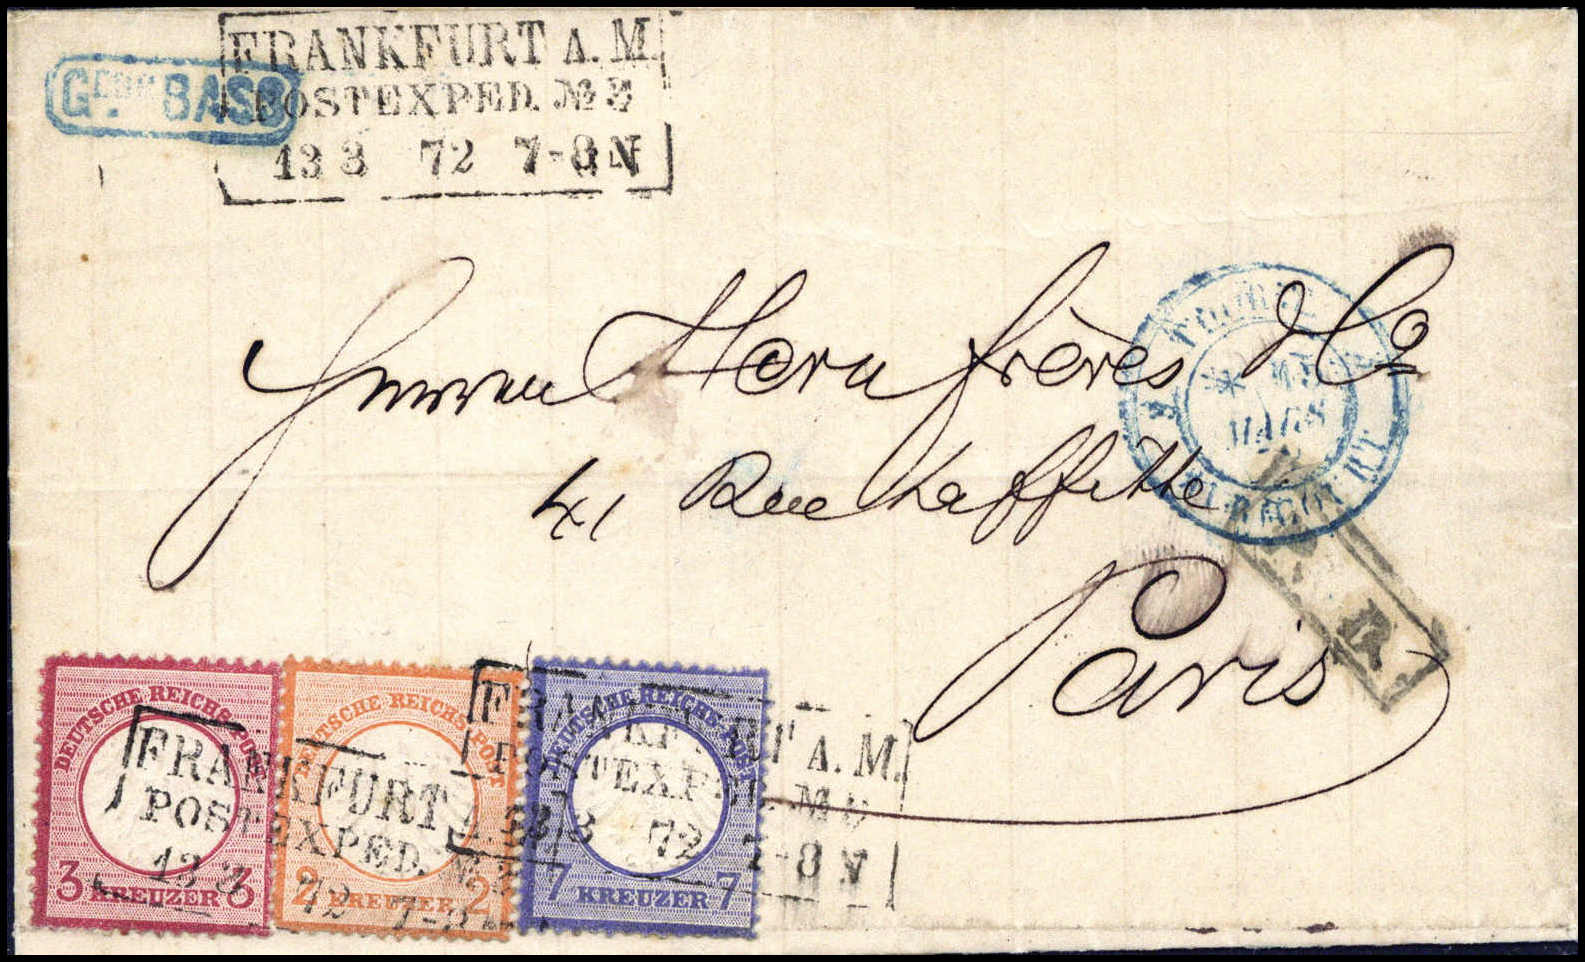 FRANKFURT A. M.
GEBR. BASS
POSTEXPED. № 3
13 3 72 7-8 N
Herren Horn frères & Co
41 Rue Laffitte
Paris
MARS
R
DEUTSCHE REICHS-POST
3 KREUZER 3
DEUTSCHE REICHS-POST
2 KREUZER 2
DEUTSCHE REICHS-POST
7 KREUZER 7
FRANKFURT A. M.
POSTEXPED. №
13 3 72 7-8
FRANKFURT A. M.
POSTEXPED. №
3 72 7-8 N